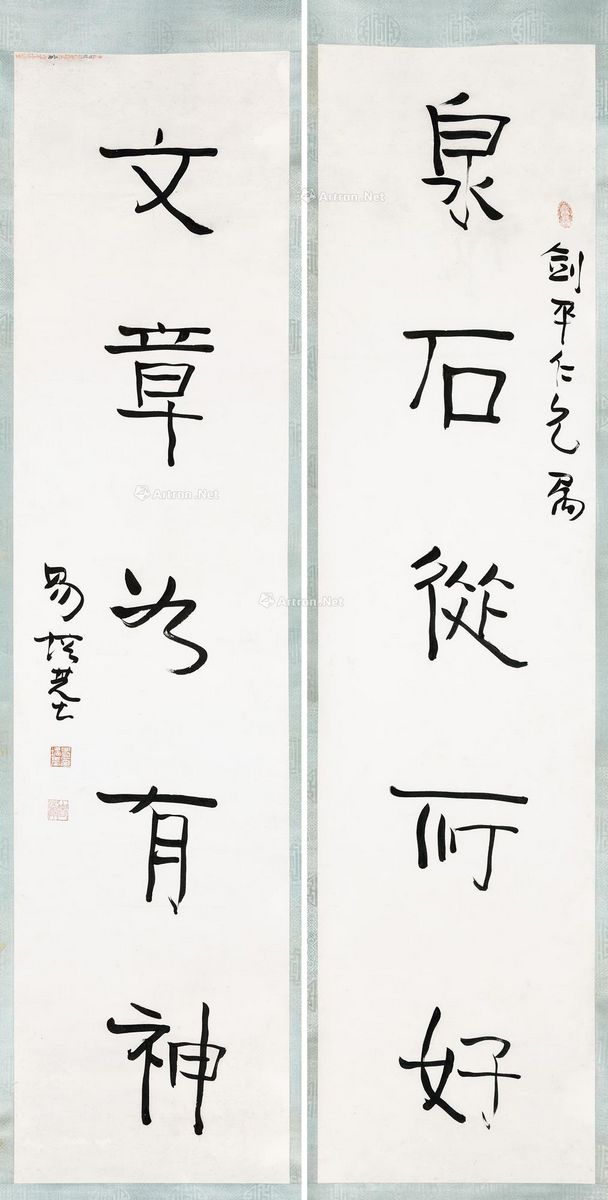 泉石從所好
劍平仁兄屬
文章若有神
易培基
Artron.Net
Artron.Net
Artron.Net